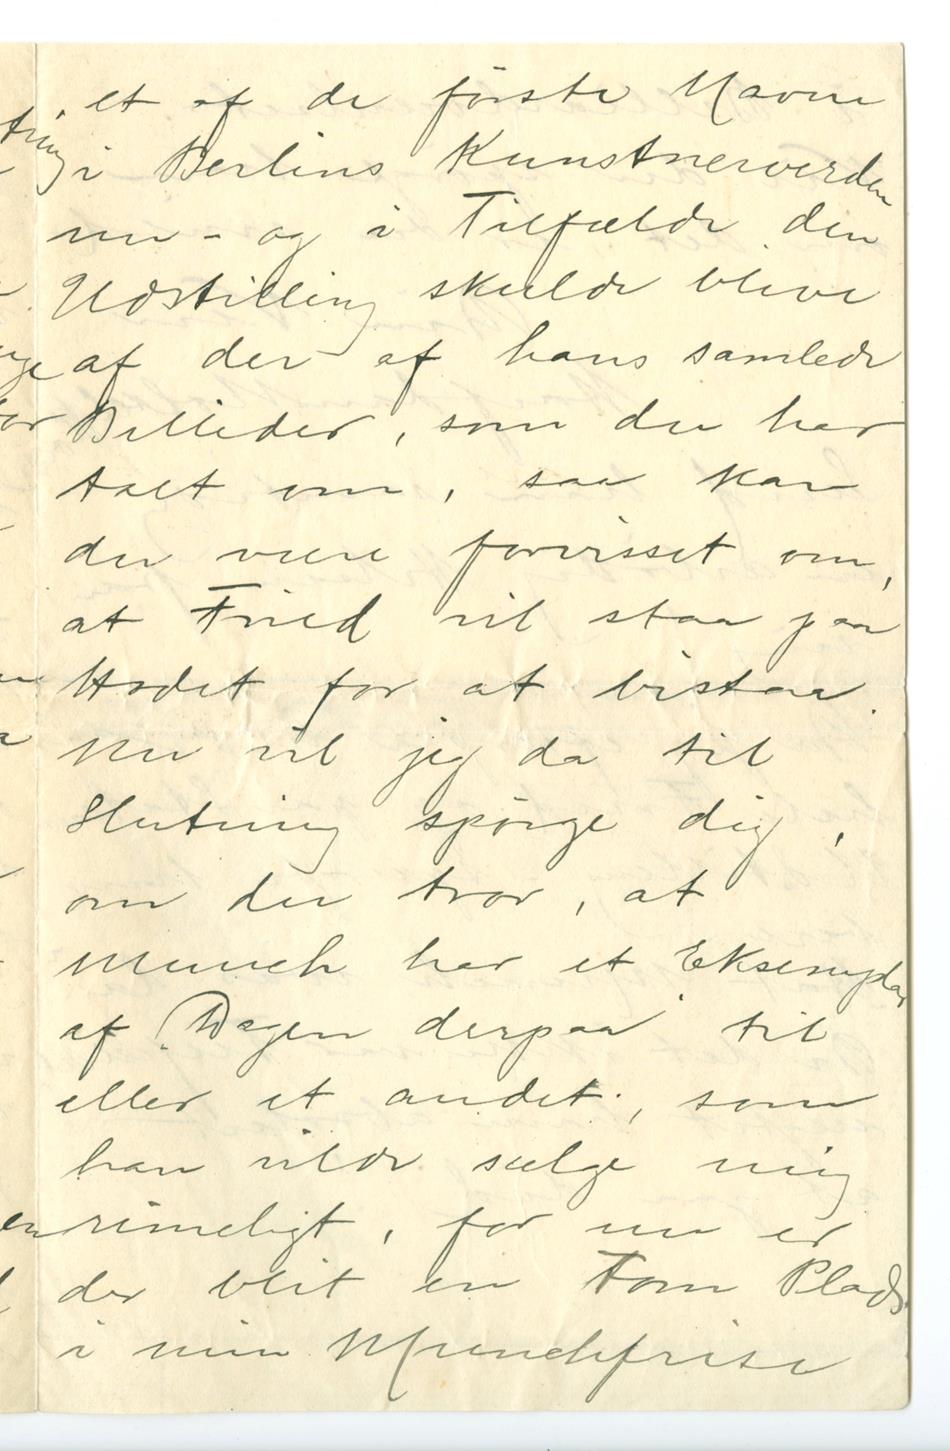 et af de første Navne
i Berlins Kunstnerverden
nu - og i Tilfælde den
Udstilling skulde blive
af der af hans samlede
Billeder, som du har
talt om, saa kan
du være forvisset om,
at Fried vil staa paa
Hodet for at bistaa.
Nu vil jeg da til
Slutning spørge dig,
om du tror, at
Munch har et Eksemplar
af "Dagen derpaa" til
eller et andet, som
han vilde sælge mig
rimeligt, for nu er
der blit en Tom Plads
i min Munchfrise